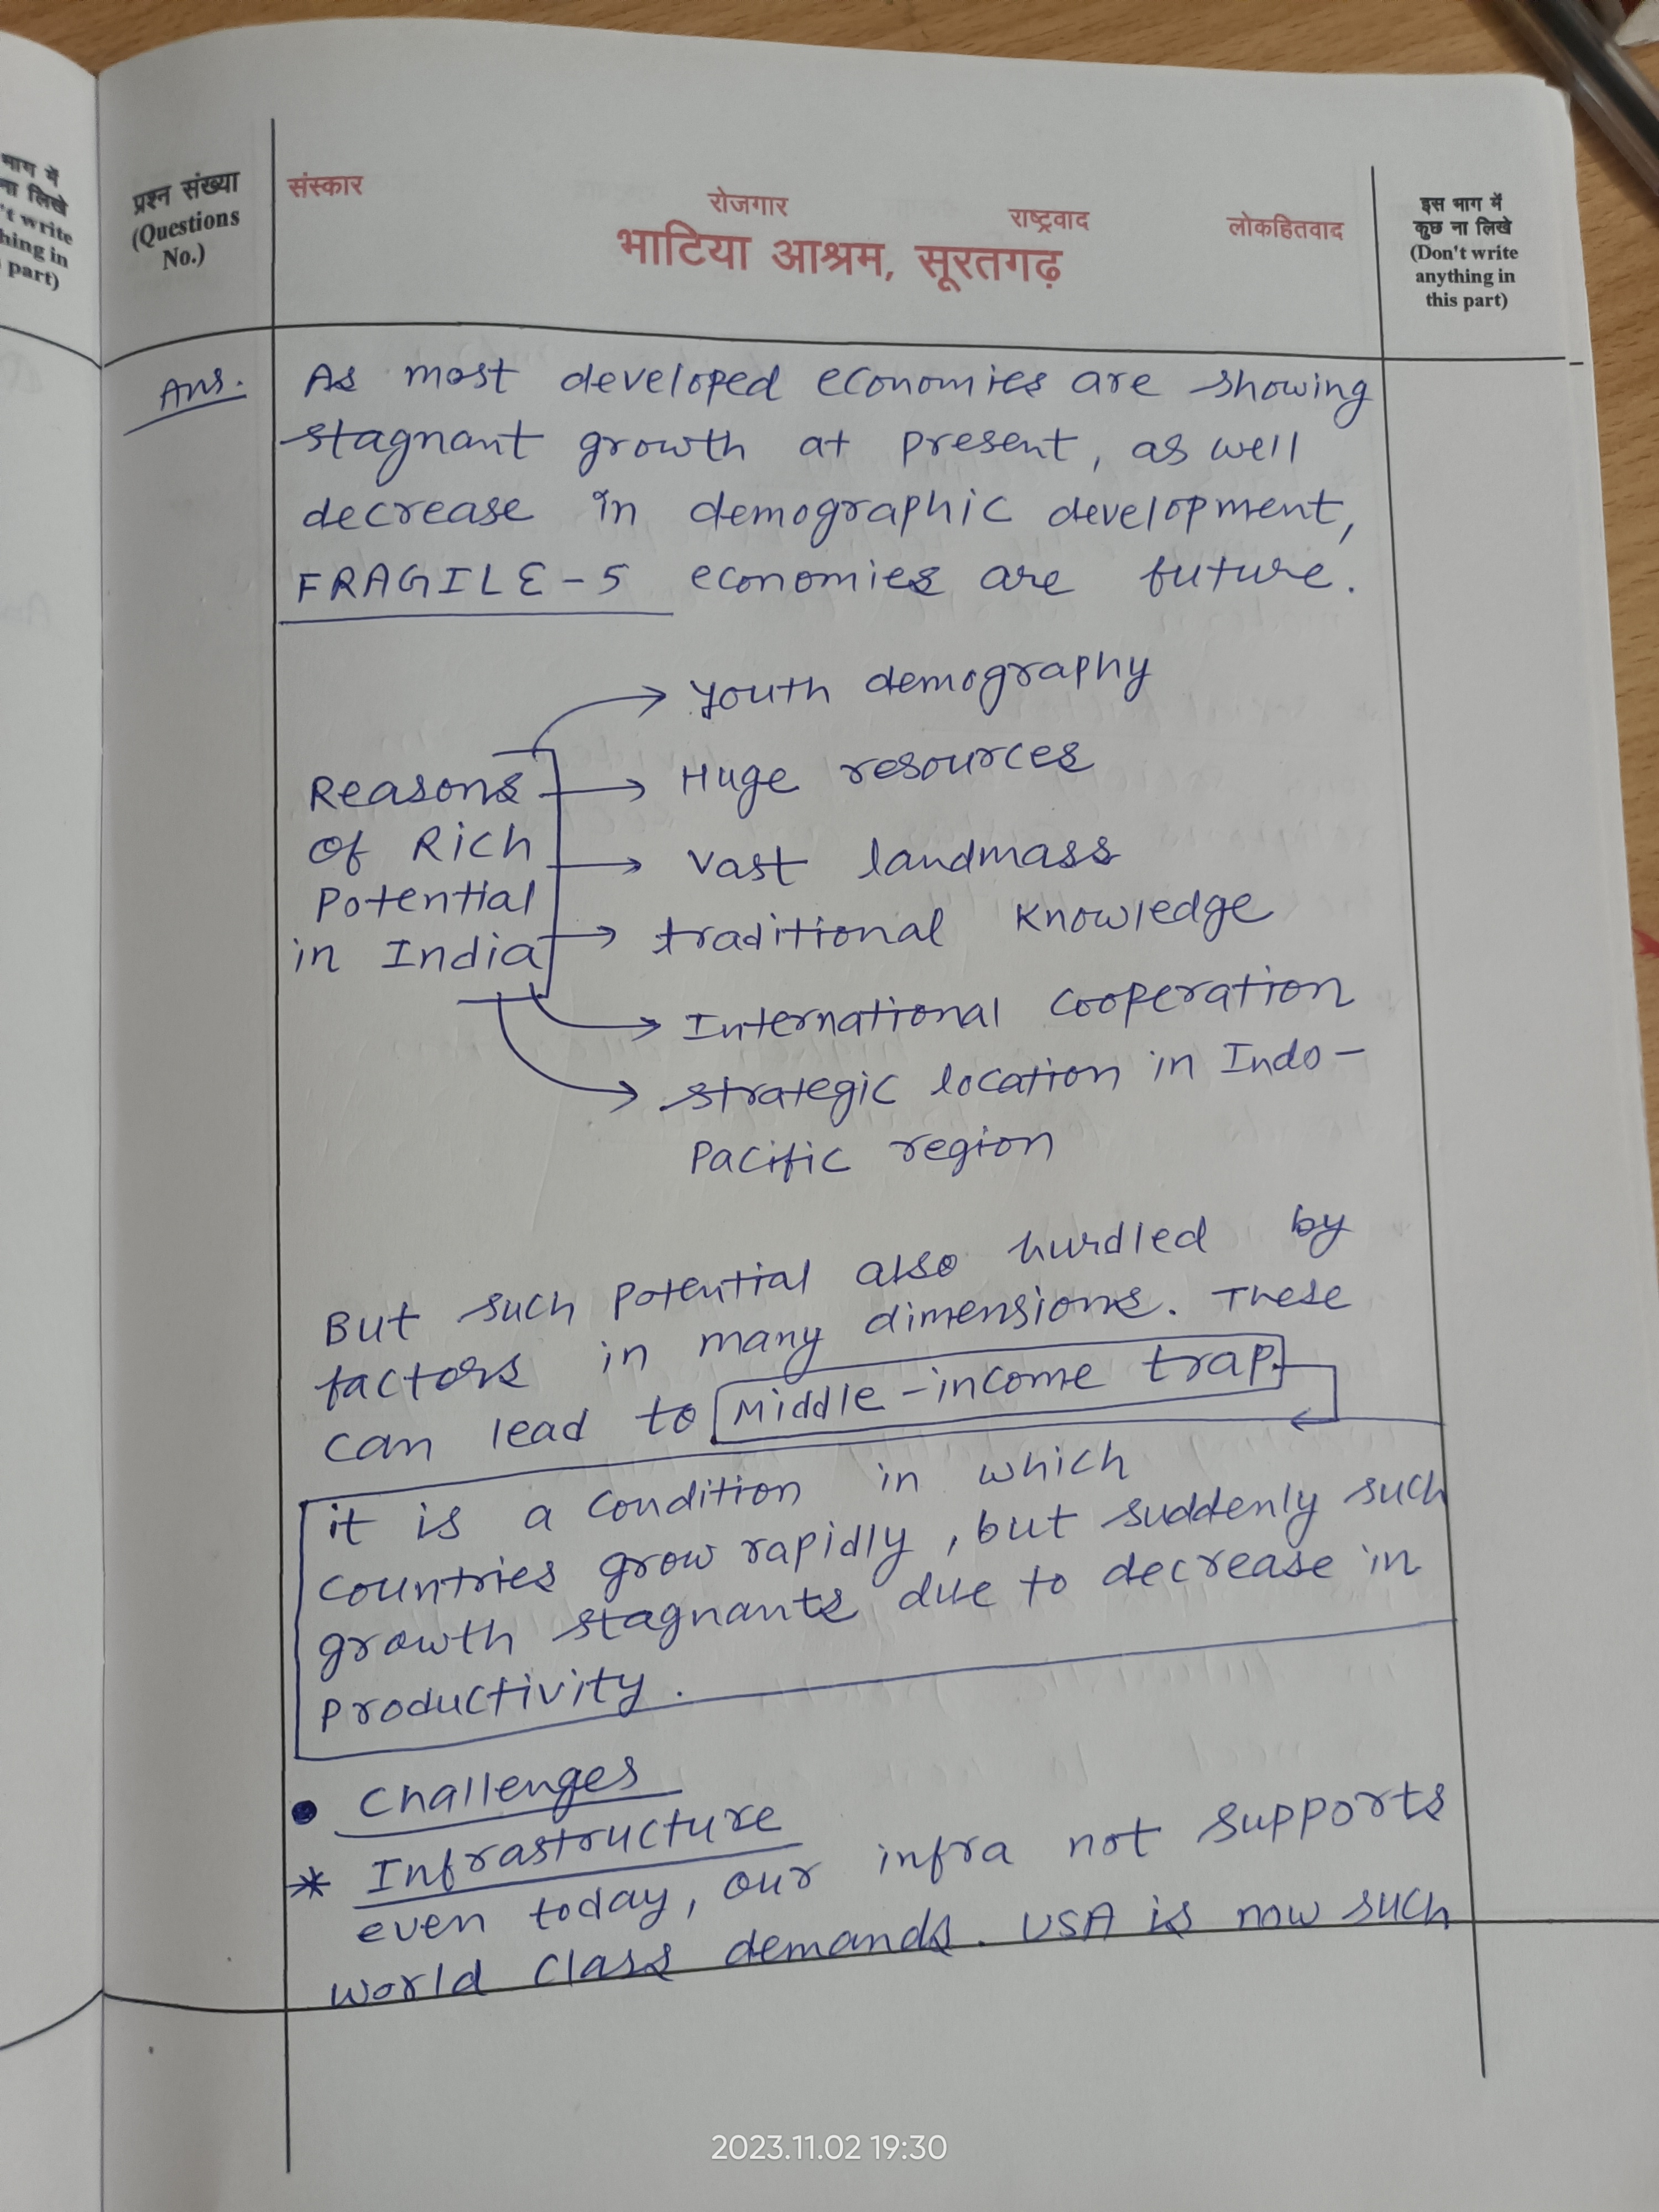 भाग में
ना लिखे
't write
hing in
part)
प्रश्न संख्या
(Questions
No.)
संस्कार
रोजगार
राष्ट्रवाद
लोकहितवाद
भाटिया आश्रम, सूरतगढ़
इस भाग में
कुछ ना लिखे
(Don't write
anything in
this part)
Ans.
As most developed economies are showing
stagnant growth at present, as well
decrease in demographic development,
FRAGILE-5 economies are future.
Reasons
of Rich
Potential
in India
Youth demography
Huge resources
Vast landmass
traditional Knowledge
International Cooperation
strategic location in Indo-
Pacific region
But such potential also hurdled by
factors in many dimensions. These
can lead to Middle-income trap.
it is a condition in which
countries grow rapidly, but suddenly such
growth stagnants due to decrease in
productivity.
• Challenges
* Infrastructure
even today, our infra not supports
world class demands. USA is now such
2023.11.02 19:30